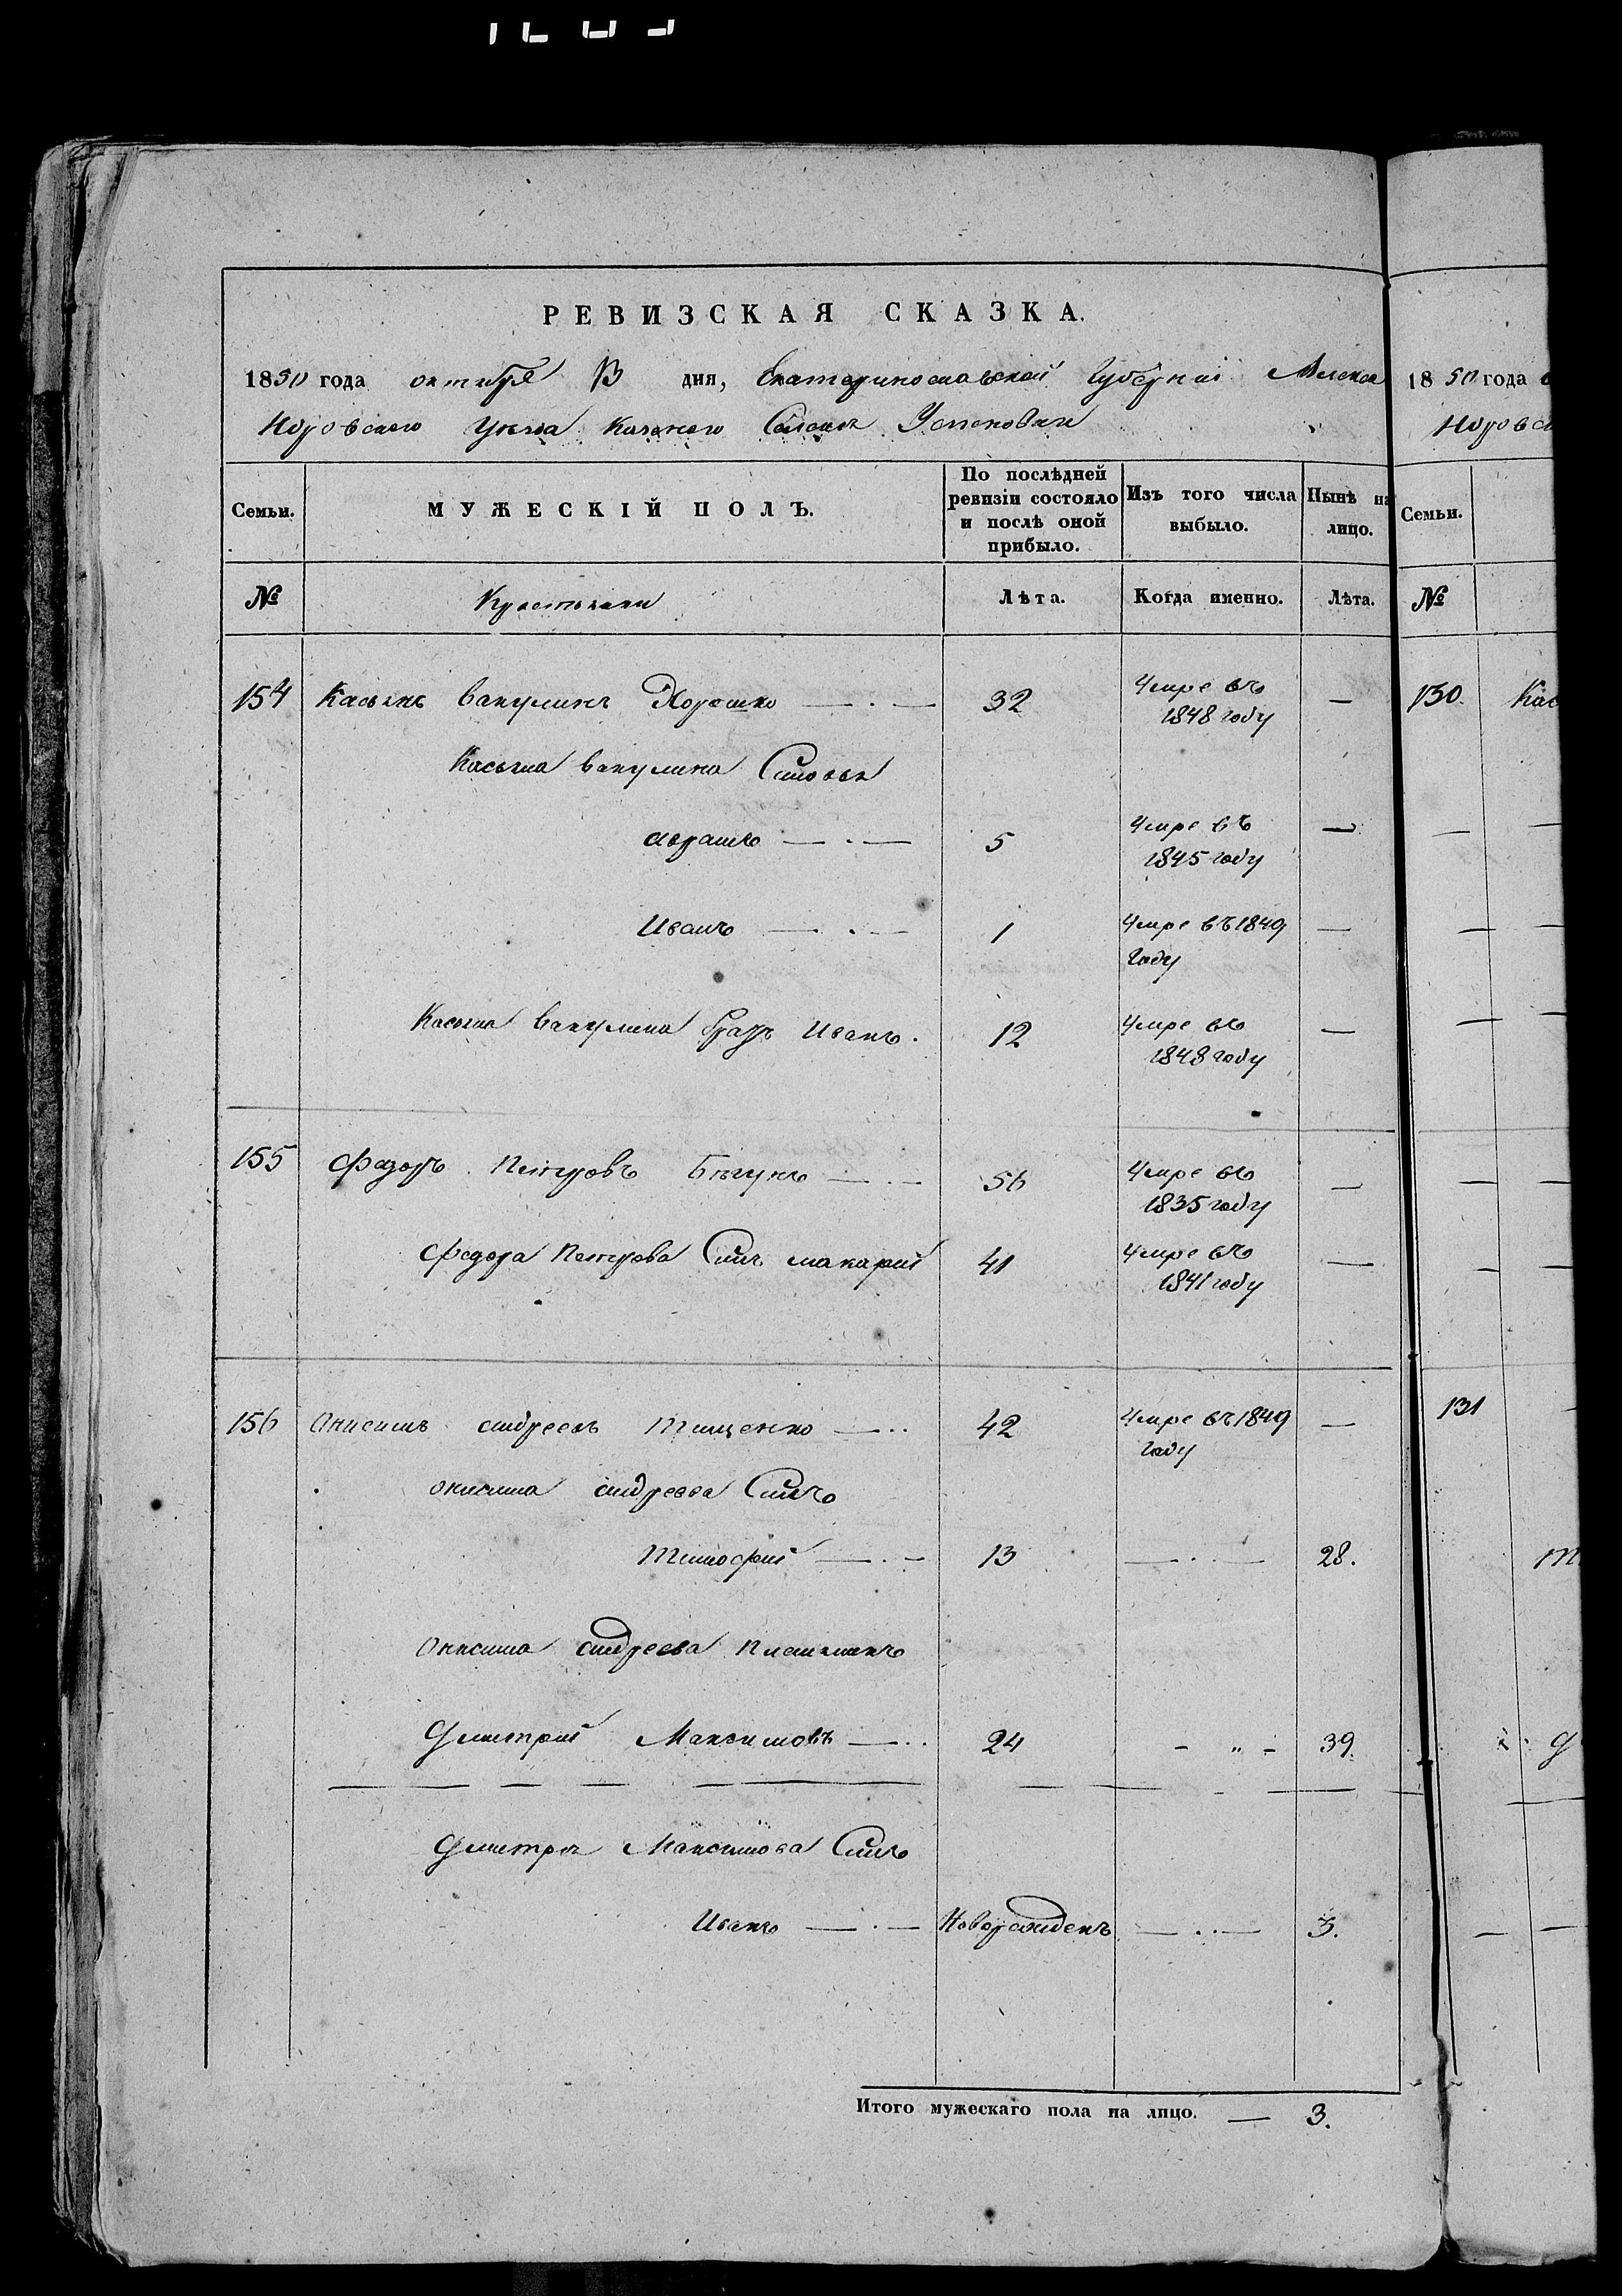 РЕВИЗСКАЯ СКАЗКА.
1850 года октября 13 дня, Екатеринославской Губернии Алекса
ндровского Уезда Казенного Селения Успеновки
Семьи.
МУЖЕСКІЙ ПОЛЪ.
По послѣдней ревизіи состояло и послѣ оной прибыло.
Изъ того числа выбыло.
Нынѣ на лицо.
№
Крестьяне
Лѣта.
Когда именно.
Лѣта.
154 Касьянъ Вакулинъ Хорошко 32 Умре въ 1848 году —
Касьяна Вакулина Сыновья
Аврамъ 5 Умре въ 1845 году —
Иванъ 1 Умре въ 1849 году —
Касьяна Вакулина братъ Иванъ. 12 Умре въ 1848 году —
155 Федоръ Петровъ Бегунъ 56 Умре въ 1835 году —
Федора Петрова Сынъ Макарий 41 Умре въ 1841 году —
156 Онисимъ Андреевъ Тищенко 42 Умре въ 1849 году —
Онисима Андреева Сынъ
Тимофий 13 — 28.
Онисима Андреева Племянникъ
Дмитрий Максимовъ 24 - „ - 39.
Дмитрия Максимова Сынъ
Иванъ Новорожденъ — 3.
Итого мужескаго пола на лицо. — 3.
18 50 года
Семьи.
№
130. Кас
131